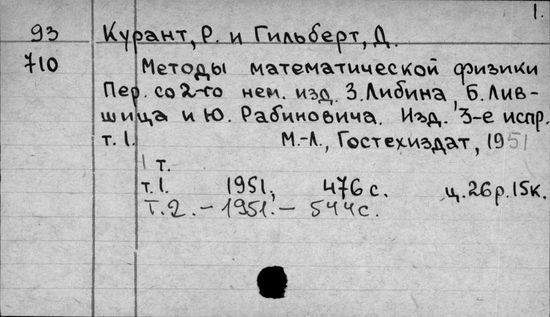 1.
93 Курант, Р. и Гильберт, Д.
710 Методы математической физики
Пер. со 2-го нем. изд. З. Либина, Б. Лив-
шица и Ю. Рабиновича. Изд. 3-е испр.
т. 1. М.-Л., Гостехиздат, 1951
1 т.
т. 1. 1951, 476 с. ц. 26 р. 15 к.
Т. 2. – 1951. – 544 с.